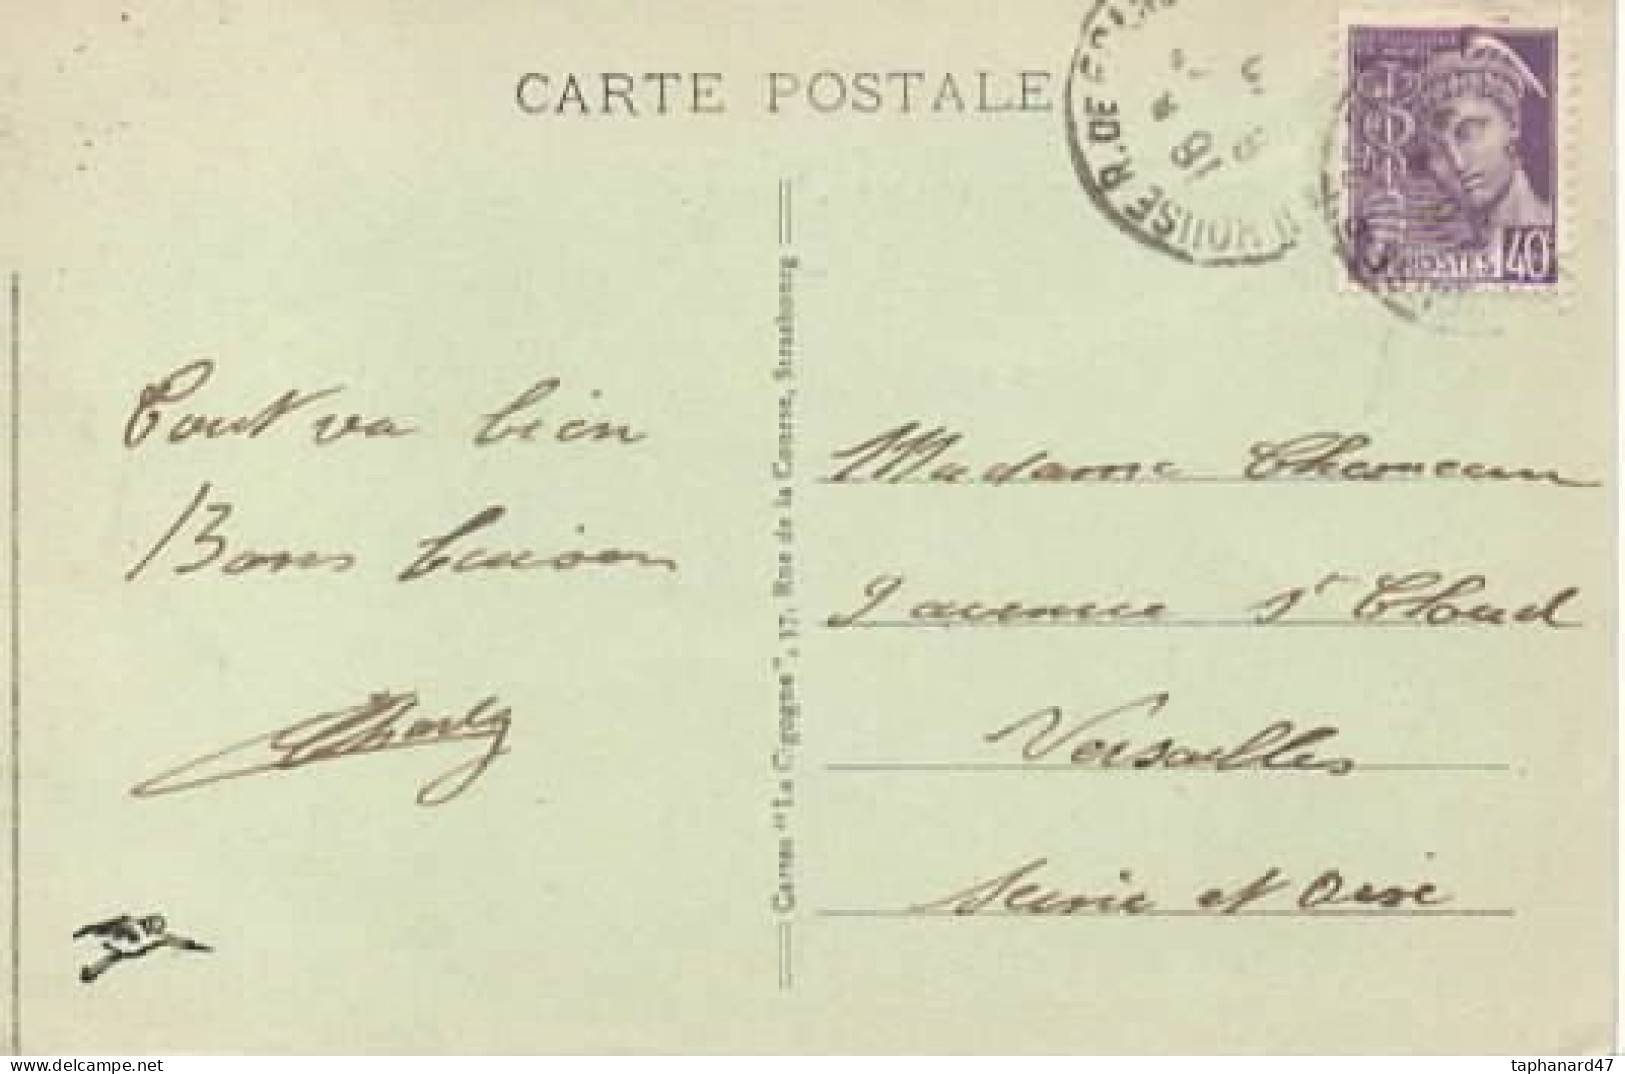 CARTE POSTALE
R. DE
18
POSTES 40
Tout va bien
Bons baisers
Charly
Cartes "La Cigogne", 17, Rue de la Course, Strasbourg
Madame
9 avenue St Cloud
Versailles
Seine et Oise
taphanard47